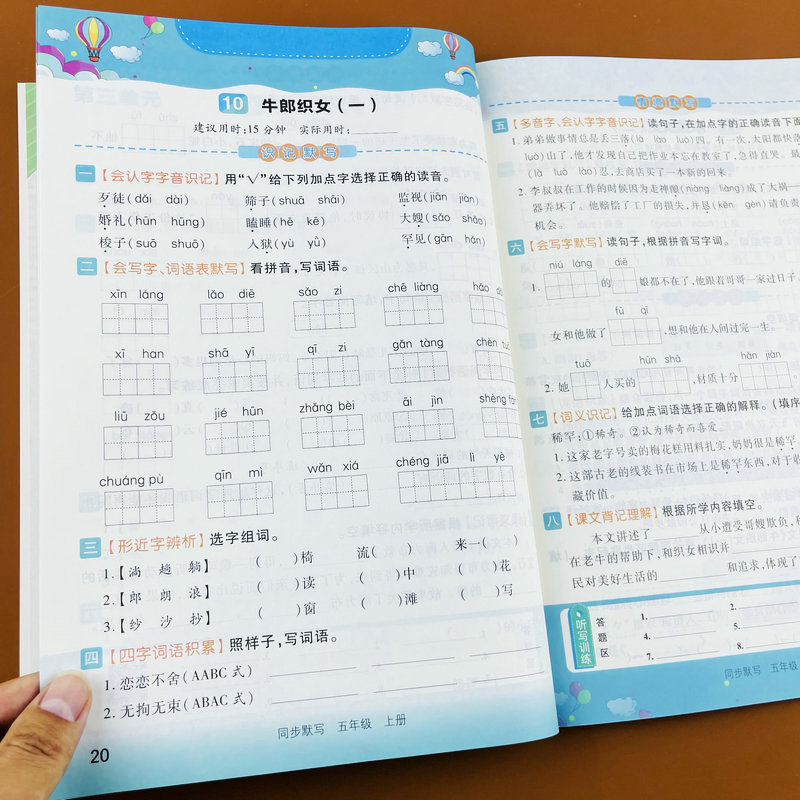 10 牛郎织女(一)
建议用时:15分钟 实际用时:
识记默写
一【会认字字音识记】用“√”给下列加点字选择正确的读音。
歹徒(dǎi dài) 筛子(shuā shāi) 监视(jiān jiàn)
婚礼(hūn hūng) 瞌睡(hē kē) 大嫂(sǎo shǎo)
梭子(suō shuō) 入狱(yù yǜ) 罕见(gǎn hǎn)
二【会写字、词语表默写】看拼音,写词语。
xīn láng lǎo diē sǎo zi chē liàng hǎo
xī han shā yī qī zi gǎn tàng chén
liū zǒu jié hūn zhǎng bèi āi jìn shèng
chuáng pù qīn mì wǎn xiá chéng jiā lì yè
三【形近字辨析】选字组词。
1.【淌 趟 躺】 ( )椅 流( ) 来一( )
2.【郎 朗 浪】 ( )读 ( )中 ( )花
3.【纱 沙 抄】 ( )窗 ( )滩 ( )写
四【四字词语积累】照样子,写词语。
1.恋恋不舍(AABC式)
2.无拘无束(ABAC式)
同步默写 五年级 上册
20
情境默写
五【多音字、会认字字音识记】读句子,在加点字的正确读音下面
1.弟弟做事情总是丢三落(là lào luò)四。有一次,太阳都快落
luò)山了,他才发现自己把作业本忘在教室了,急得直哭。最
(là lào luò)忍,去商店买了一本新的回来。
2.李叔叔在工作的时候因为走神酿(niàng liàng)成了大祸一
器弄坏了。他赔偿了工厂的损失,并恳(kěn gèn)请负责
机会。
六【会写字默写】读句子,根据拼音写字词。
niú láng diē
1. 的 娘都不在了,他跟着哥哥一家过日子。
fū qī
女和他做了 ,想和他在人间过完一生。
tuō hūn shā hǎn jiàn
2.她 人买的 ,材质十分
七【词义识记】给加点词语选择正确的解释。(填序
稀罕:①稀奇。②认为稀奇而喜爱。
1.这家老字号卖的梅花糕用料扎实,奶奶很是稀罕
2.这部古老的线装书在市场上是稀罕东西,对于收
藏价值。
八【课文背记理解】根据所学内容填空。
本文讲述了 从小遭受哥嫂欺负,
在老牛的帮助下,和织女相识并
民对美好生活的 和追求,体现了
听写训练
答题区
1. 2.
4. 5.
7. 8.
同步默写 五年级